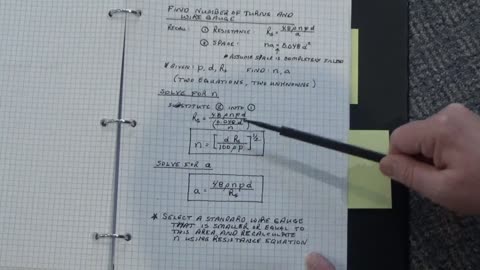 FIND NUMBER OF TURNS AND
WIRE GAUGE
RECALL: ① RESISTANCE R₀ = 4.8 ρ n p d / a
② SPACE: na = 0.048 d²
* ASSUMES SPACE IS COMPLETELY FILLED
* GIVEN: p, d, R₀ FIND: n, a
(TWO EQUATIONS, TWO UNKNOWNS)
SOLVE FOR n
SUBSTITUTE ② INTO ①
R₀ = 4.8 ρ n p d / (0.048 d² / n)
n = [d R₀ / 100 ρ p]^1/2
SOLVE FOR a
a = 4.8 ρ n p d / R₀
* SELECT A STANDARD WIRE GAUGE
THAT IS SMALLER OR EQUAL TO
THIS AREA, AND RECALCULATE
n USING RESISTANCE EQUATION